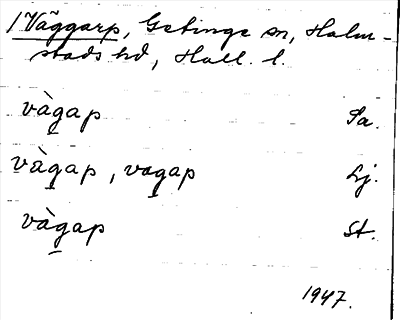 /Väggarp, Getinge sn, Halm-
stads hd, Hall. l.
vàgap Sa.
vàgap, vagap Lj.
vàgap St.
1947.